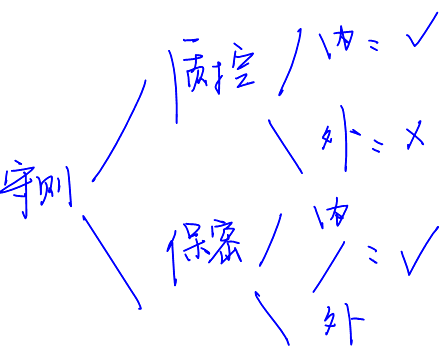 守则
质控
内 = ✓
外 = ×
保密
内/外 = ✓